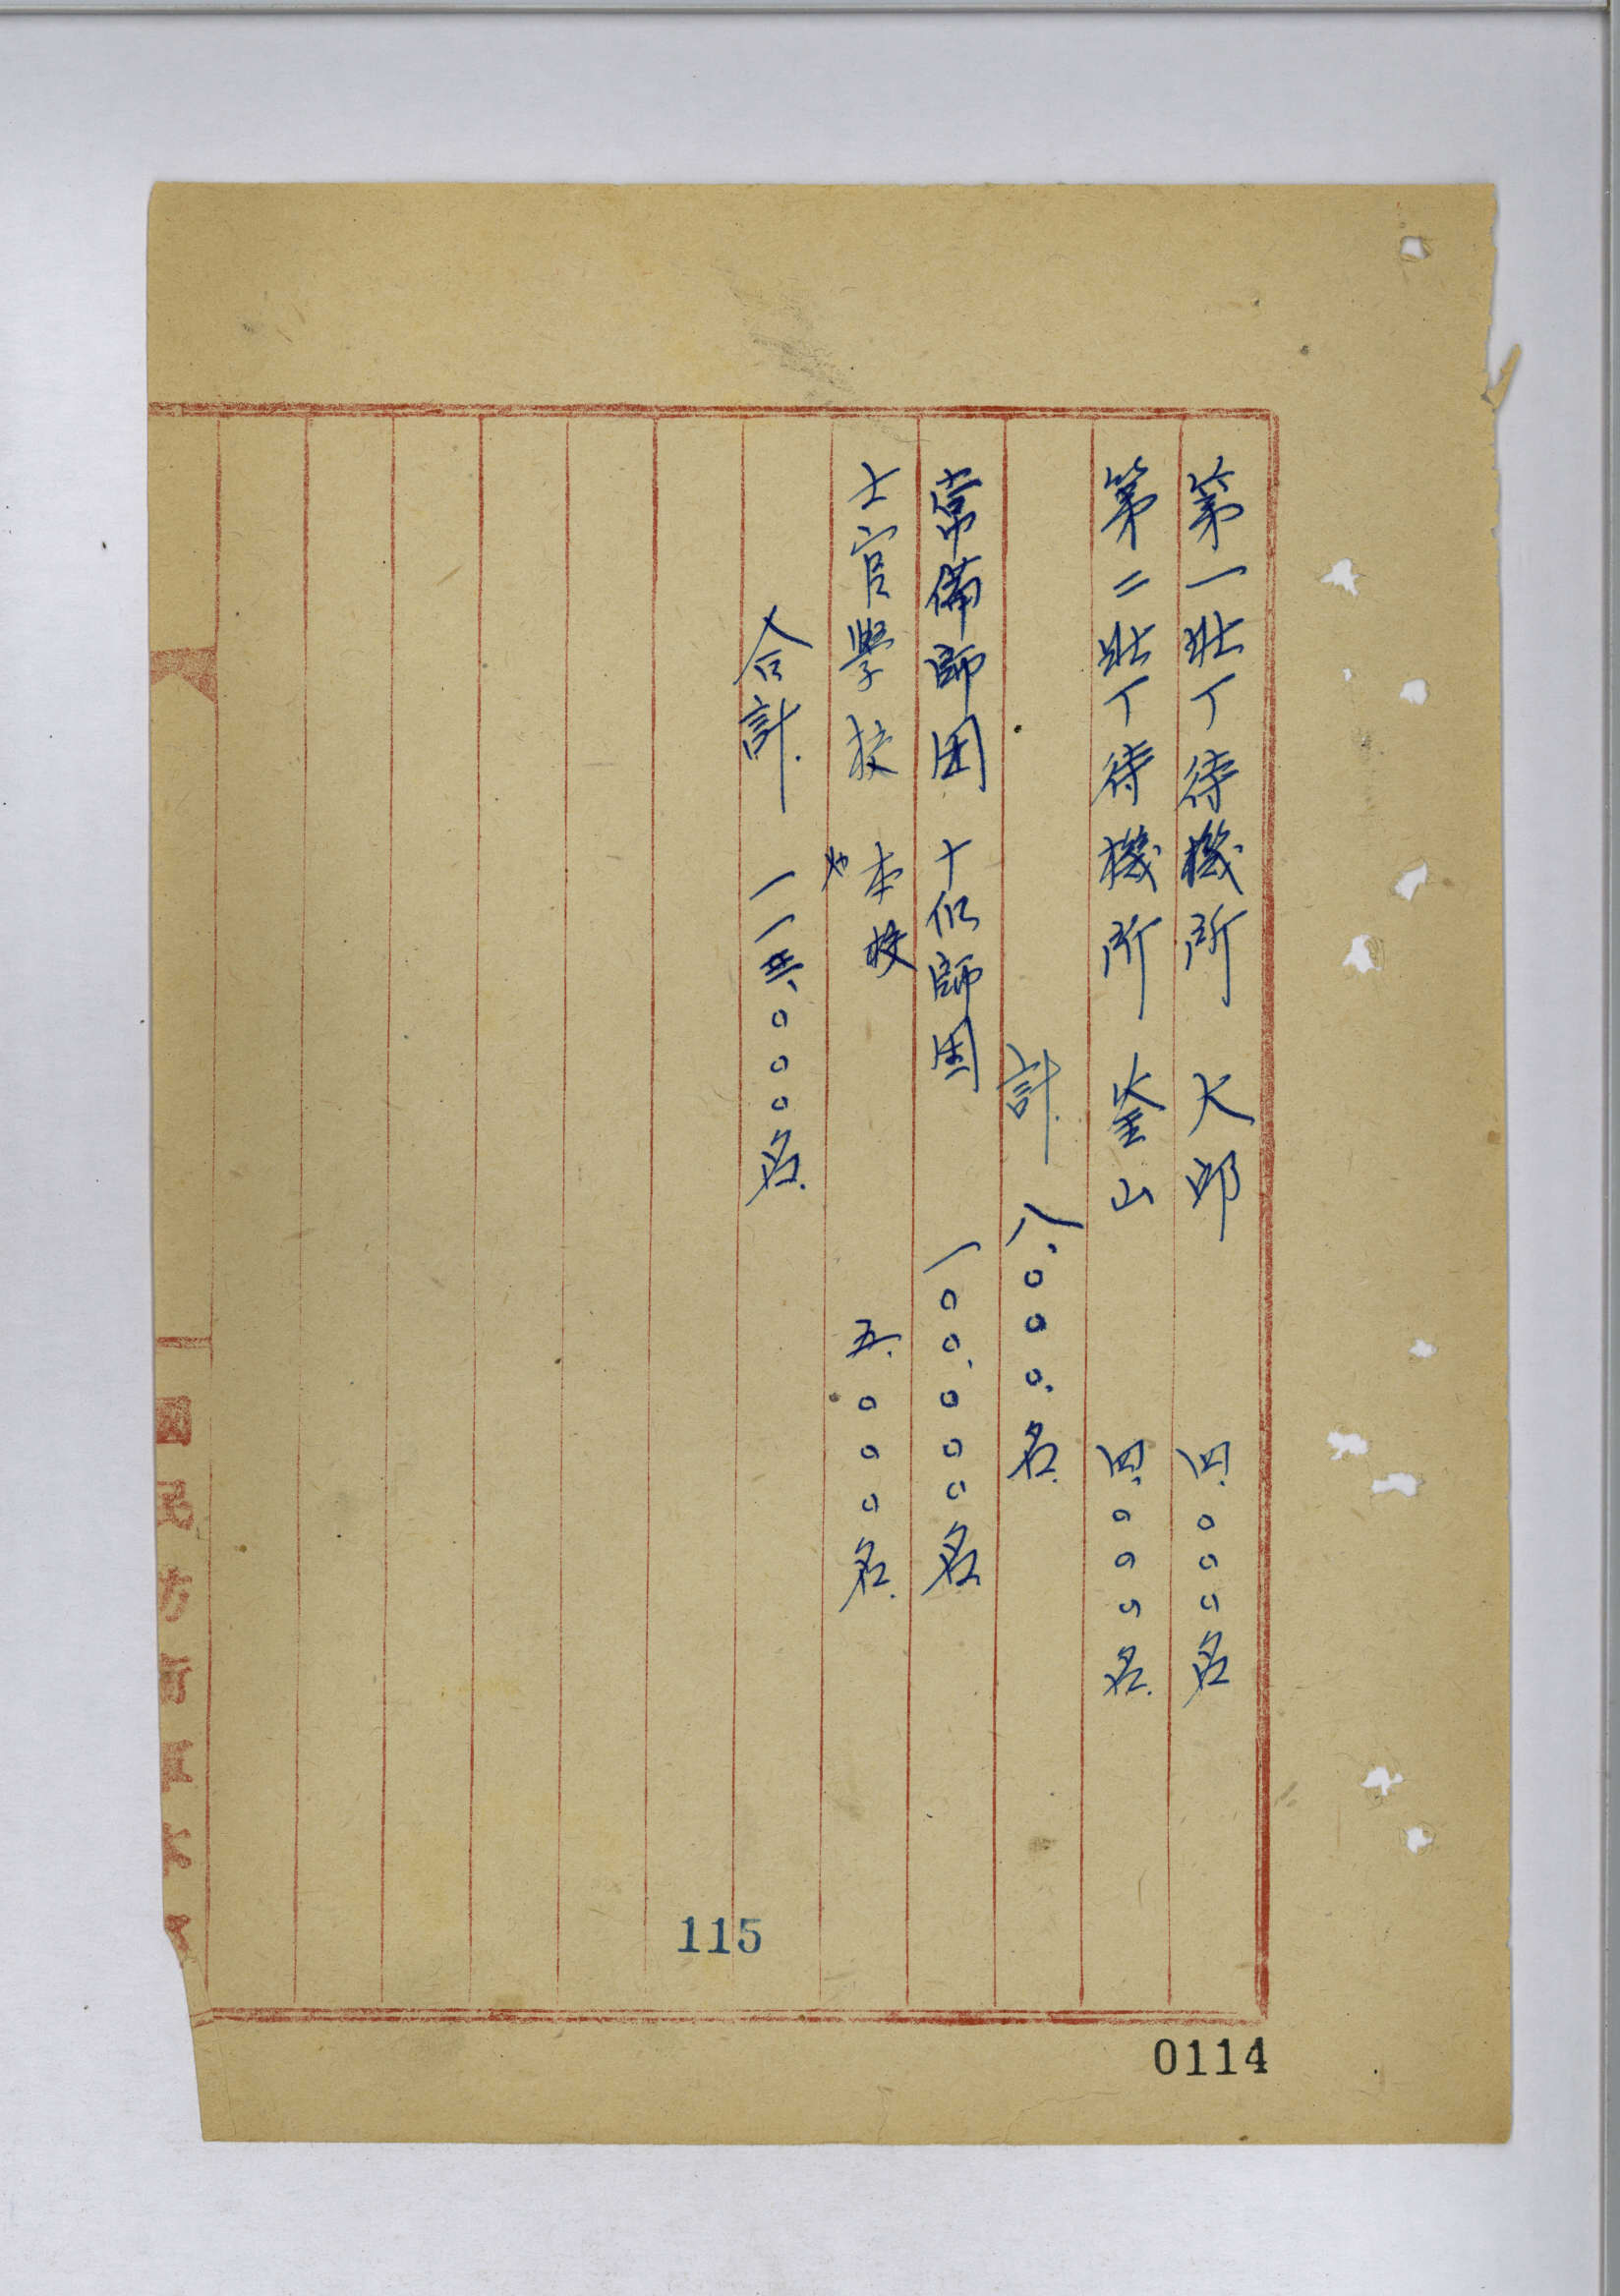 第一壮丁待機所 大邱 四.〇〇〇名
第二壮丁待機所 釜山 四.〇〇〇名.
計. 八.〇〇〇.名.
常備師団 十個師団 一〇〇.〇〇〇名
士官學校 本校 五.〇〇〇名.
合計. 一一三.〇〇〇名.
國民
115
0114